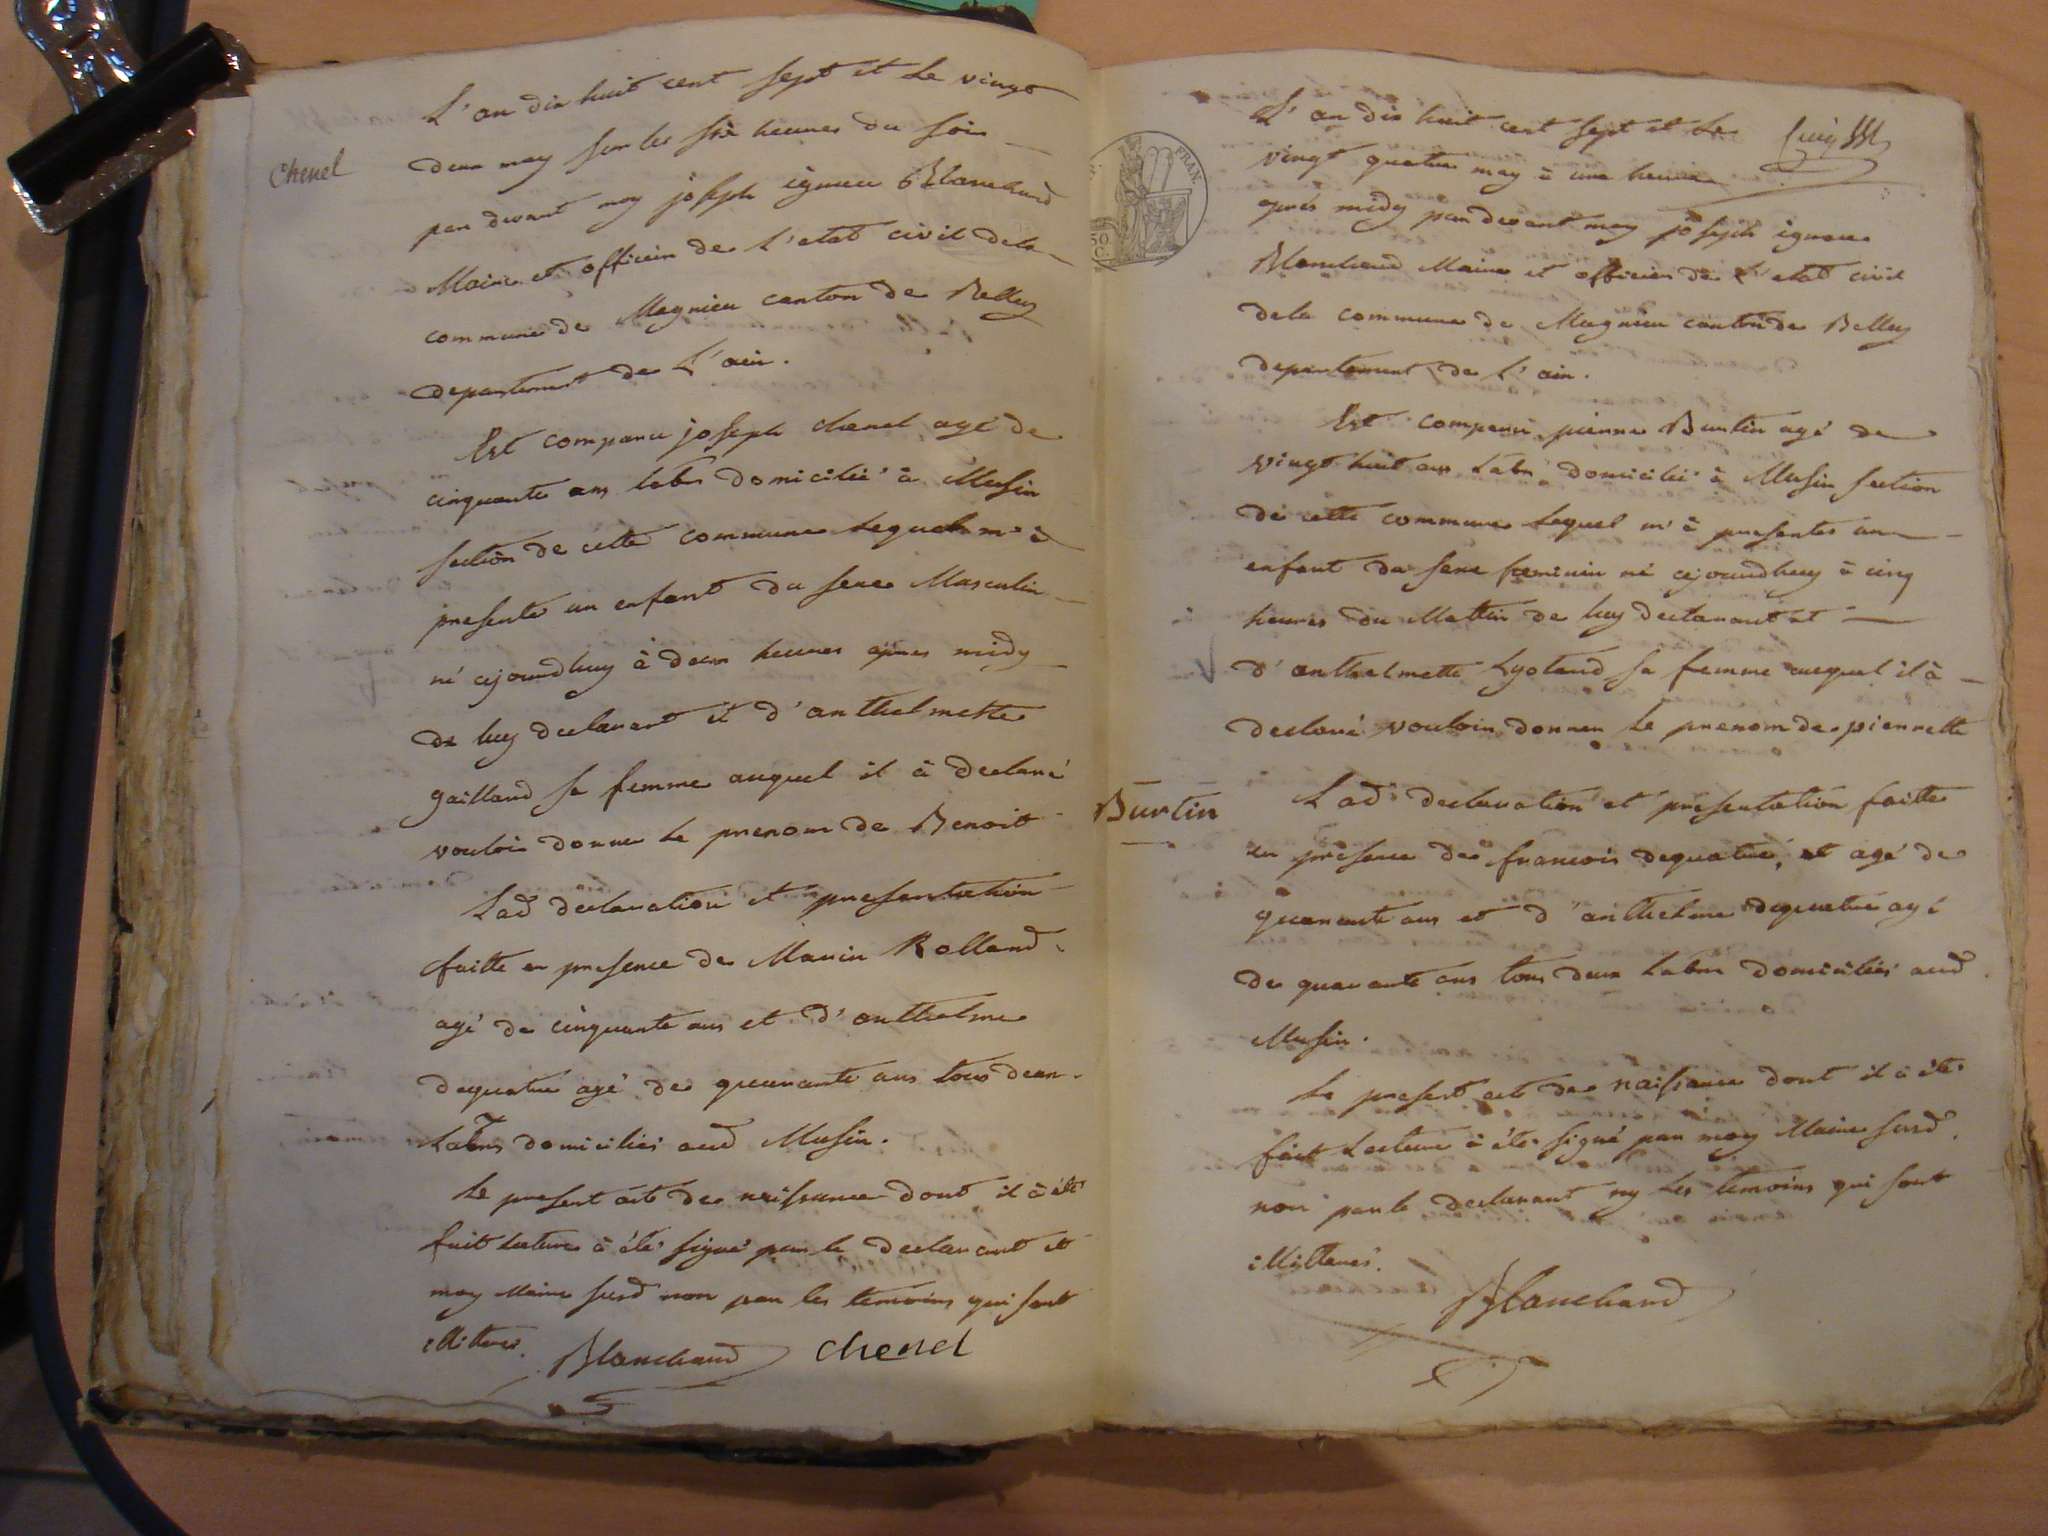 Chenel
L'an dix huit cent sept et le vingt
deux may sur les six heures du soir
par devant moy joseph ignace Blanchard
Maire et officier de l'etat civil dela
commune de Magnieu canton de Belley
departement de L'ain.
Est comparu joseph chenel agé de
cinquante ans labr domicilié à Musin
section de cette commune lequel m'à
presenté un enfant du sexe Masculin
né cejourdhuy à deux heures apres midy
de luy declarant et d'anthelmette
gaillard sa femme auquel il à declaré
vouloir donner le prenom de Benoit
Lad declaration et presentation
faitte en presence de Marin Rolland
agé de cinquante ans et d'anthelme
dequatre agé de quarante ans tous deux
Labrs domiciliés aud Musin.
Le present acte de naissance dont il à été
fait lecture à été signé par le declarant et
moy Maire susd non par les temoins qui sont
illitteres.
Blanchard chenel
FRAN.
50
C.
L'an dix huit cent sept et le
vingt quatre may à une heure
aprés midy par devant moy joseph ignace
Blanchard Maire et officier de L'etat civil
dela commune de Magnieu canton de Belley
departement de L'ain.
Est comparu pierre Burtin agé de
vingt huit ans labr domicilié à Musin section
de cette commune lequel m'à presentés un
enfant du sexe feminin né cejourdhuy à cinq
heures du Mattin de luy declarant et
d'anthelmette Lyotard sa femme auquel il à
declaré vouloir donner le prenom de pierrette
Burtin
Lad declaration et presentation faitte
en presence de francois dequatre, et agé de
quarante ans et d'anthelme dequatre agé
de quarante ans tous deux Labrs domiciliés aud
Musin.
Le present acte de naissance dont il à été
fait lecture à été signé par moy Maire susd
non par le declarant ny les temoins qui sont
illitterés.
Blanchard